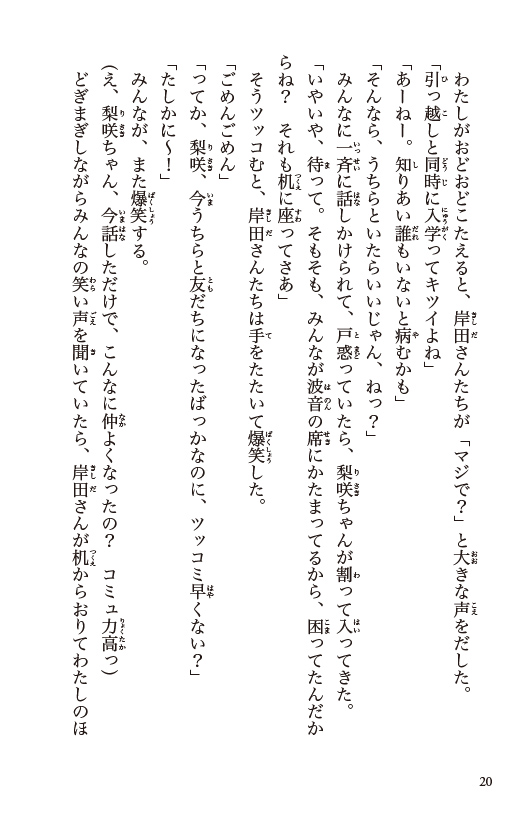 わたしがおどおどこたえると、岸田さんたちが「マジで？」と大きな声をだした。
「引っ越しと同時に入学ってキツイよね」
「あーねー。知りあい誰もいないと病むかも」
「そんなら、うちらといたらいいじゃん、ねっ？」
みんなに一斉に話しかけられて、戸惑っていたら、梨咲ちゃんが割って入ってきた。
「いやいや、待って。そもそも、みんなが波音の席にかたまってるから、困ってたんだか
らね？　それも机に座ってさあ」
そうツッコむと、岸田さんたちは手をたたいて爆笑した。
「ごめんごめん」
「ってか、梨咲、今うちらと友だちになったばっかなのに、ツッコミ早くない？」
「たしかに～！」
みんなが、また爆笑する。
(え、梨咲ちゃん、今話しただけで、こんなに仲よくなったの？　コミュ力高っ)
どぎまぎしながらみんなの笑い声を聞いていたら、岸田さんが机からおりてわたしのほ
20